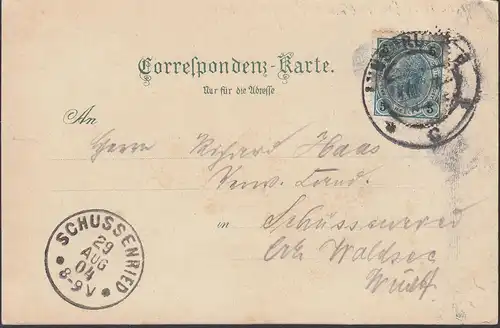 Correspondenz-Karte.
Nur für die Adresse
An
Herrn Richard Haas
Verw. Cand.
in
Schussenried
Waldsee
Württ
5 5
SCHUSSENRIED
29
AUG
04
8-9V